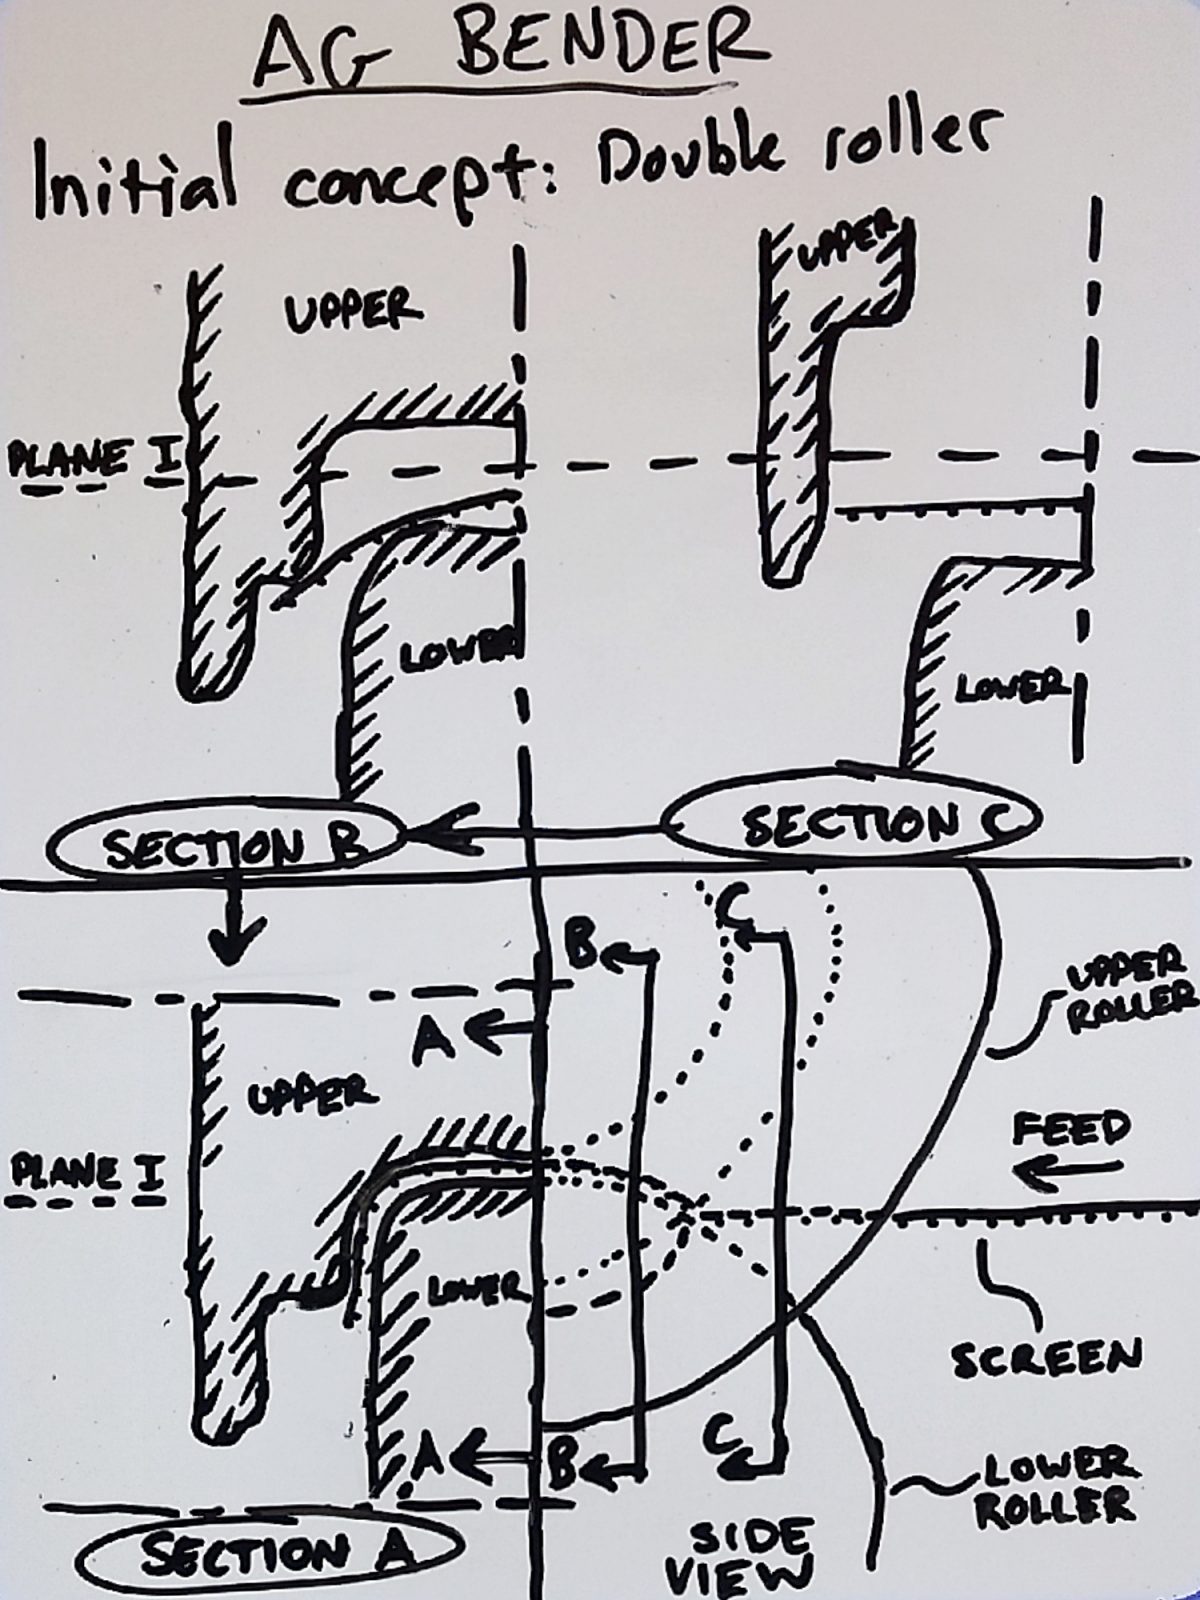 AG BENDER
Initial concept: Double roller
UPPER
UPPER
PLANE I
LOWER
LOWER
SECTION B
SECTION C
B
C
A
UPPER ROLLER
UPPER
FEED
PLANE I
LOWER
SCREEN
A
B
C
LOWER ROLLER
SECTION A
SIDE VIEW